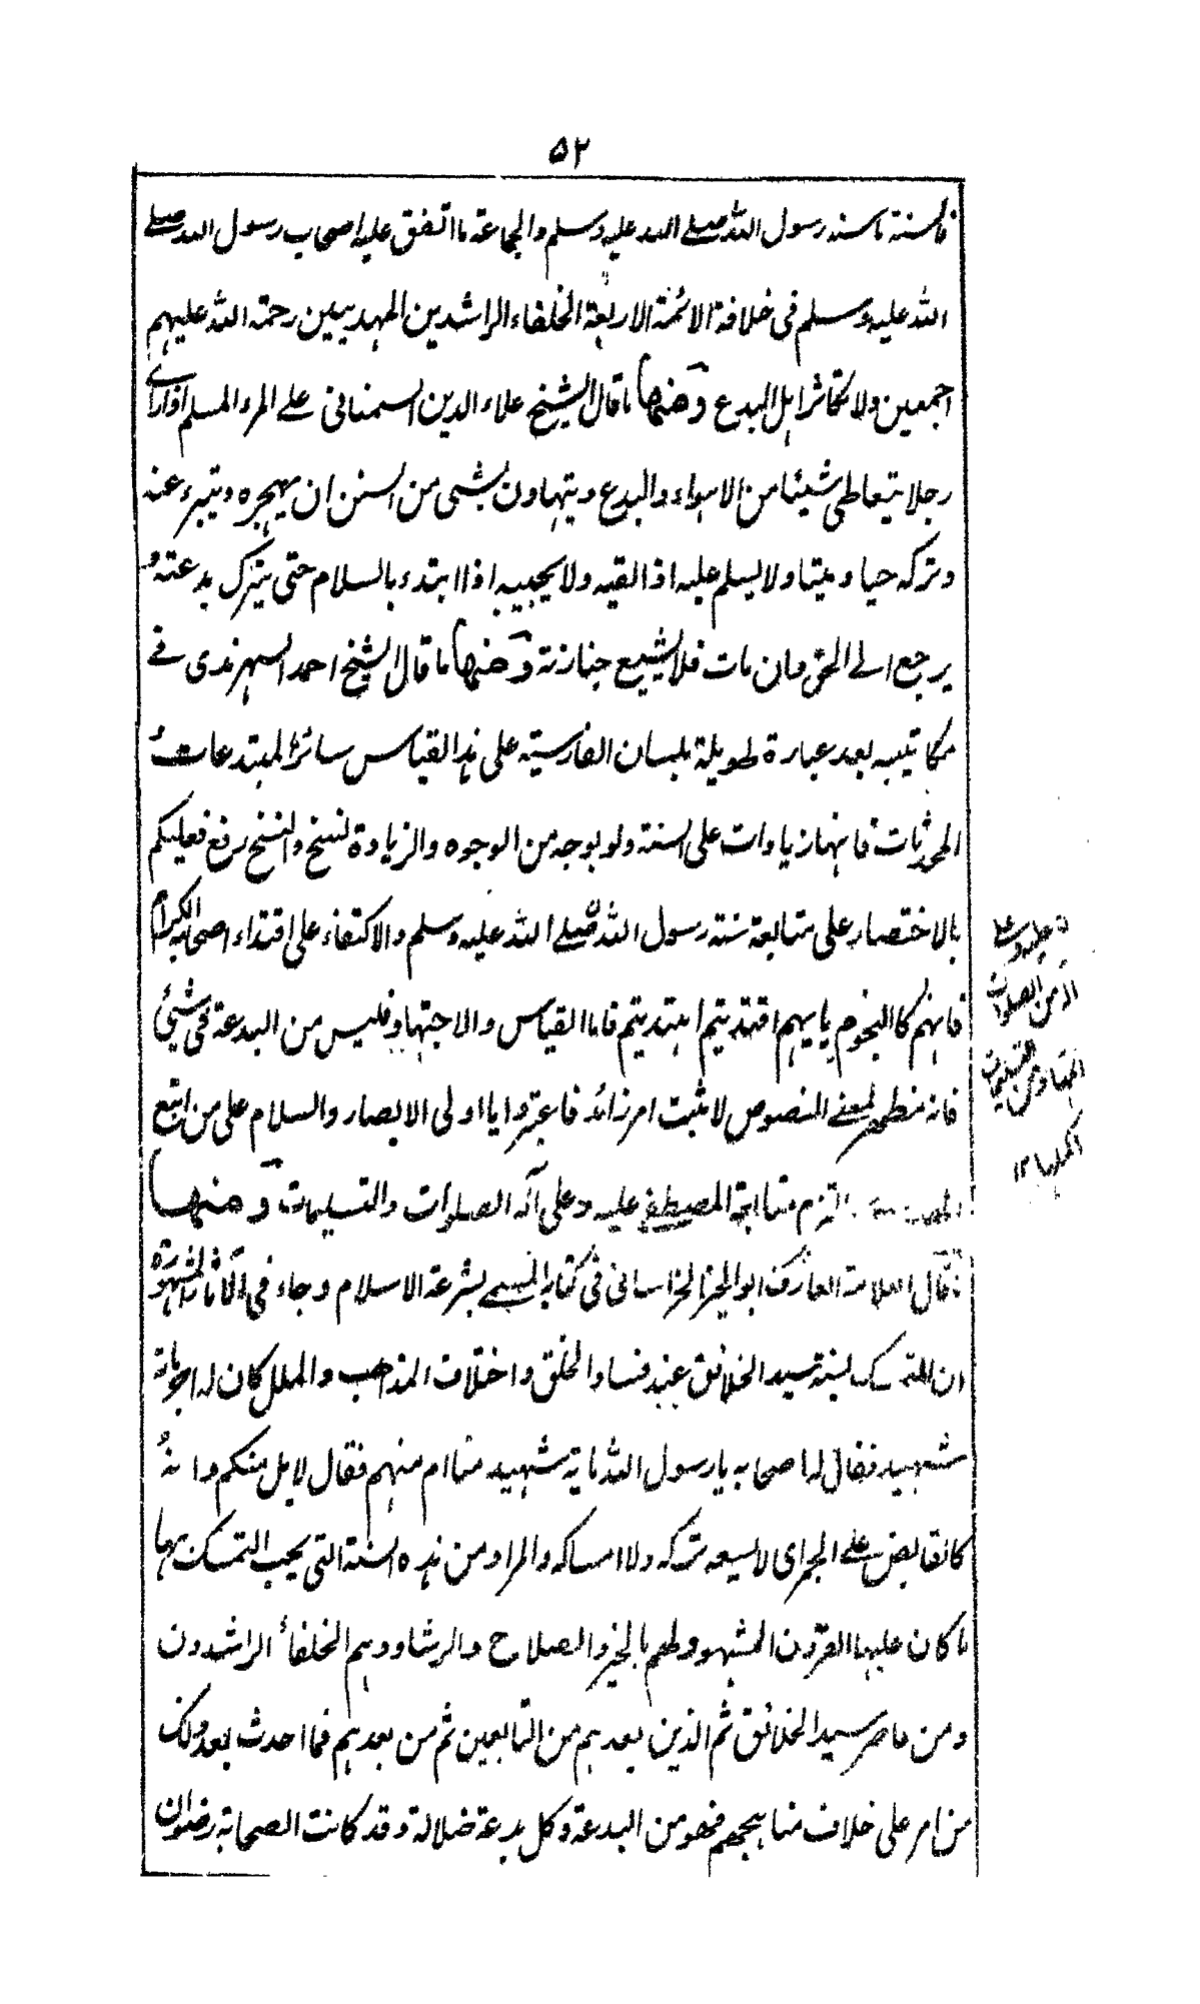 ٥٢
فالسنة ما سنه رسول الله صلے الله عليه وسلم والجماعة ما اتفق عليه اصحاب رسول الله صلے
الله عليه وسلم فى خلافة الائمة الاربعة الخلفاء الراشدين المهديين رحمة الله عليهم
اجمعين ولا تكاثر اهل البدع ومنها ما قال الشيخ علاء الدين السمنانى على المرء المسلم اذا رأى
رجلا يتعاطى شيئا من الاهواء والبدع ويتهاون بشى من السنن ان يهجره ويتبرء عنه
وتركه حيا وميتا ولا يسلم عليه اذا لقيه ولا يجيبه اذا ابتدء بالسلام حتى يترك بدعته و
يرجع الى الحق وان مات فلا يشيع جنازته ومنها ما قال الشيخ احمد السهرندى فے
مكاتيبه بعد عبارة طويلة بلسان الفارسية على هذا القياس سائر المبتدعات و
المحدثات فانها زيادات على السنة ولو بوجه من الوجوه والزيادة نسخ والنسخ رفع فعليكم
بالاختصار على متابعة سنة رسول الله صلے الله عليه وسلم والاكتفاء على اقتداء اصحابه الكرام
فانهم كالنجوم بايهم اقتديتم اهتديتم فاما القياس والاجتهاد فليس من البدعة فى شيئ
فانه مظهر لمعنے النصوص لا مثبت امر زائد فاعتبروا يا اولى الابصار والسلام على من اتبع
التزم متابعة المصطفے عليه وعلى آله الصلوات والتسليمات ومنها
قال العلامة العارف ابو الخير الخراسانى فى كتابه المسمے بشرعة الاسلام وجاء فى الآثار المشهورة
ان المتمسك بسنة سيد الخلائق عند فساد الخلق واختلاف المذاهب والملل كان له اجر مائة
شهيد فقال له اصحابه يا رسول الله مائة شهيد منا ام منهم فقال لا بل منكم وانه
كالقابض على الجمر اى لا يسعه تركه ولا امساكه والمراد من هذه السنة التى يجب التمسك بها
ما كان عليها القرون المشهود لهم بالخير والصلاح والرشاد وهم الخلفاء الراشدون
ومن عاصر سيد الخلائق ثم الذين بعدهم من التابعين ثم من بعدهم فما احدث بعد ذلك
من امر على خلاف مناهجهم فهو من البدعة وكل بدعة ضلالة وقد كانت الصحابة رضوان
من الصلوات
التسليمات
اكملها ١٢